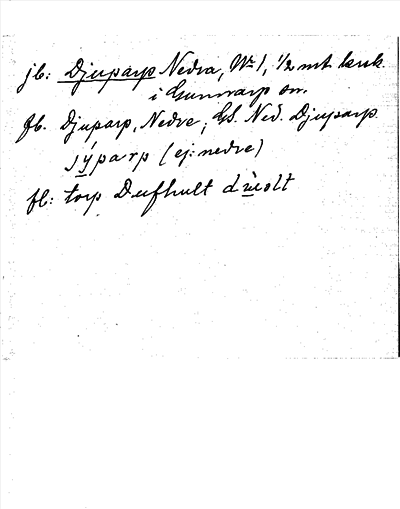 jb: Djuparp Nedra, No 1, 1/2 mt kr.sk.
i Gunnarp sn.
fb. Djuparp, Nedre; GS. Ned. Djuparp
jýparp (ej: nedre)
fb: torp Dufhult dùolt